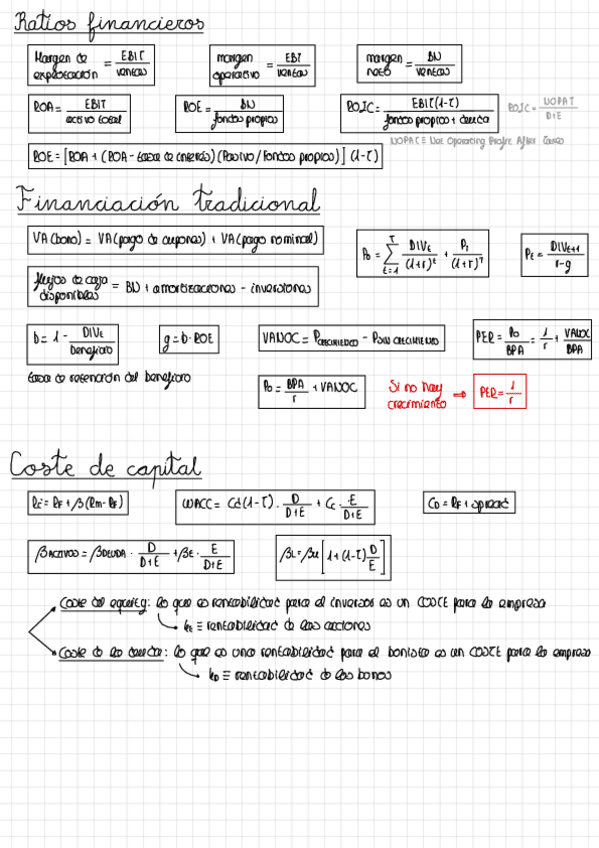 Ratios financieros
Margen de explotación = EBIT / ventas
margen operativo = EBT / ventas
margen neto = BN / ventas
ROA = EBIT / activo total
ROE = BN / fondos propios
ROIC = EBIT(1-τ) / fondos propios + deuda
ROIC = NOPAT / D+E
NOPAT ≡ Net Operating Profit After Taxes
ROE = [ROA + (ROA - tasa de interés)(Pasivo/Fondos propios)] (1-τ)
Financiación tradicional
VA (bono) = VA (pago de cupones) + VA (pago nominal)
P₀ = Σ_{t=1}^{T} DIVt / (1+r)^t + PT / (1+r)^T
Pt = DIVt+1 / r-g
flujos de caja disponibles = BN + amortizaciones - inversiones
b = 1 - DIVt / beneficio
g = b · ROE
VANOC = PCRECIMIENTO - PSIN CRECIMIENTO
PER = P₀ / BPA = 1 / r + VANOC / BPA
tasa de retención del beneficio
P₀ = BPA / r + VANOC
Si no hay crecimiento ⇒ PER = 1 / r
Coste de capital
RF + β(Rm - RF)
WACC = Cd (1-τ) · D / D+E + Cc · E / D+E
CD = RF + spread
βACTIVOS = βDEUDA · D / D+E + βE · E / D+E
βL = βu [1 + (1-τ) D / E]
Coste del equity: lo que es rentabilidad para el inversor es un COSTE para la empresa
ke ≡ rentabilidad de las acciones
Coste de la deuda: lo que es una rentabilidad para el bonista es un COSTE para la empresa
kD ≡ rentabilidad de los bonos